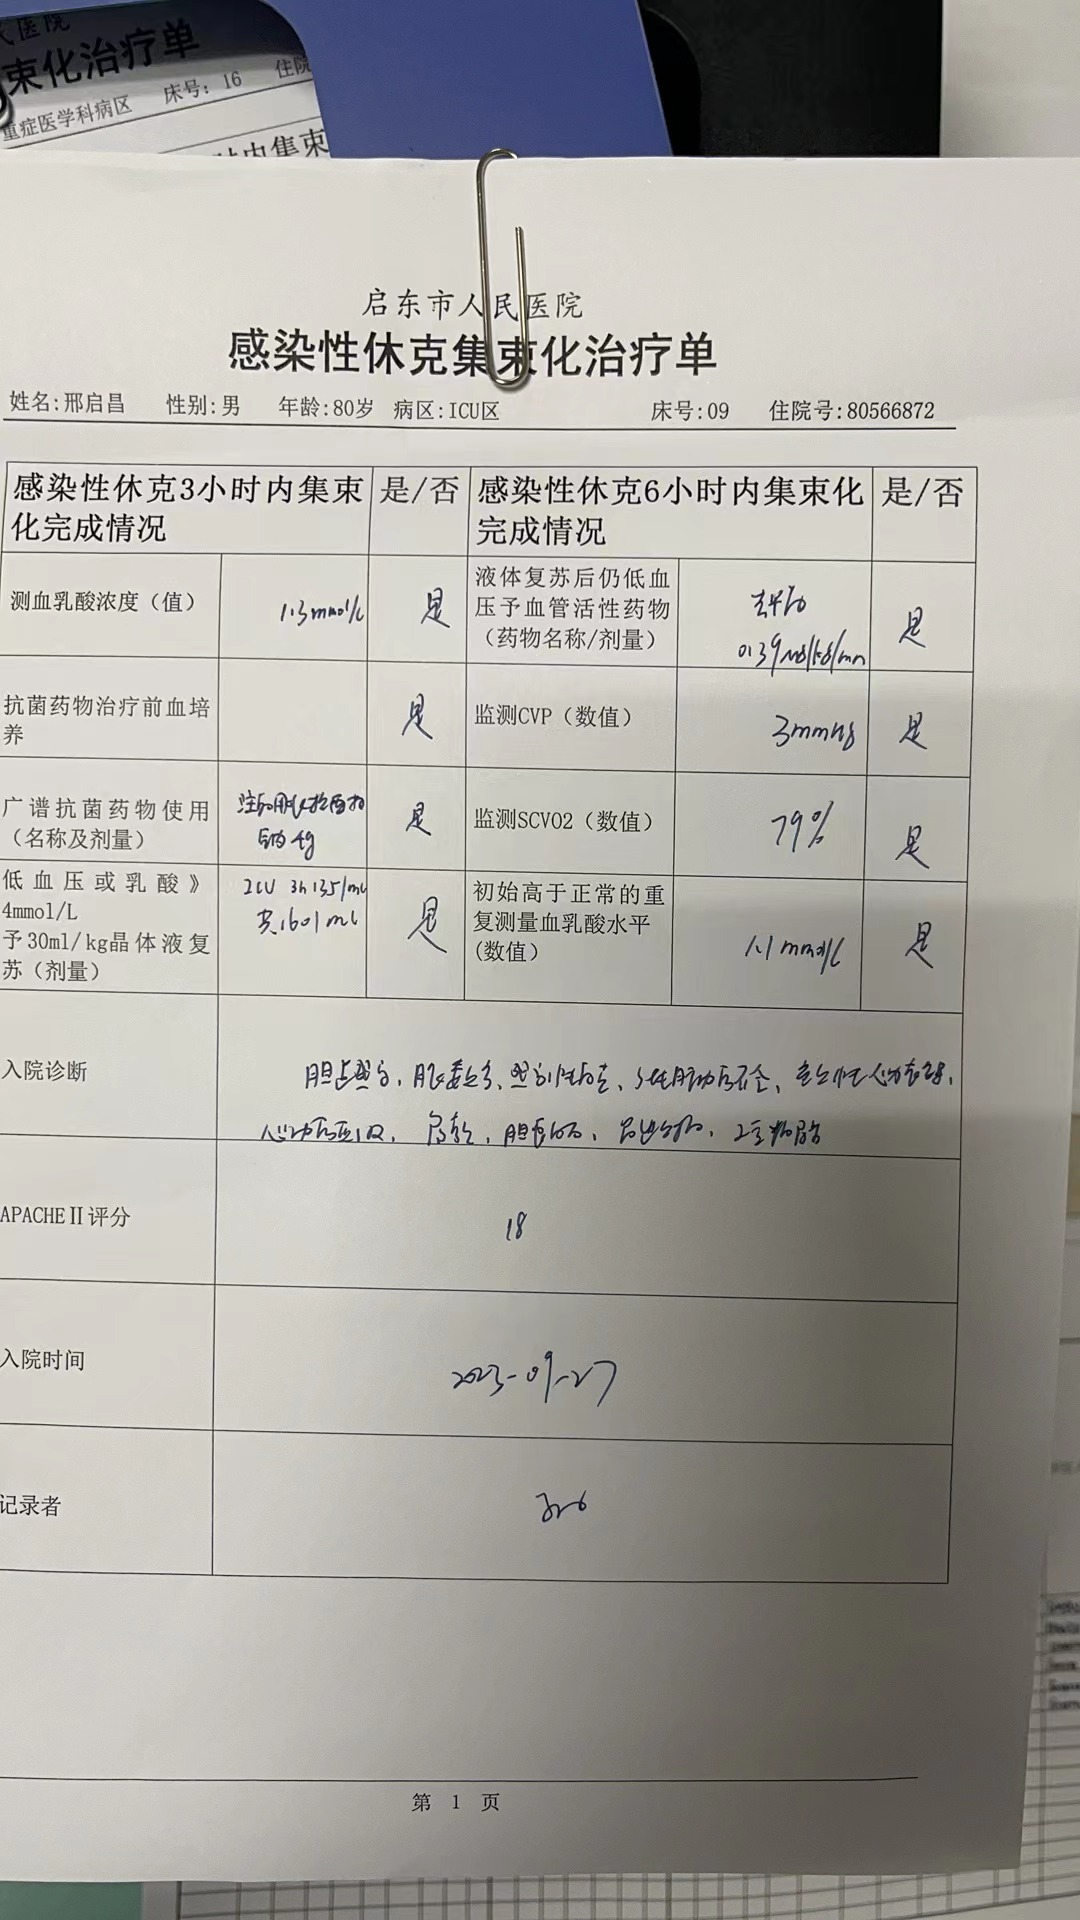 民医院
束化治疗单
重症医学科病区 床号: 16 住院
时内集束
启东市人民医院
感染性休克集束化治疗单
姓名:邢启昌 性别:男 年龄:80岁 病区:ICU区 床号:09 住院号:80566872
感染性休克3小时内集束
化完成情况
是/否
感染性休克6小时内集束化
完成情况
是/否
测血乳酸浓度（值）
1.3mmol/L
是
液体复苏后仍低血
压予血管活性药物
（药物名称/剂量）
0.39ug/kg/min
是
抗菌药物治疗前血培
养
是
监测CVP（数值）
3mmHg
是
广谱抗菌药物使用
（名称及剂量）
钠 4g
是
监测SCVO2（数值）
79%
是
低血压或乳酸》
4mmol/L
予30ml/kg晶体液复
苏（剂量）
ICU 3h 1351ml
共1601ml
是
初始高于正常的重
复测量血乳酸水平
(数值)
1.1mmol/L
是
入院诊断
胆
APACHEⅡ评分
18
入院时间
2023-09-27
记录者
第 1 页